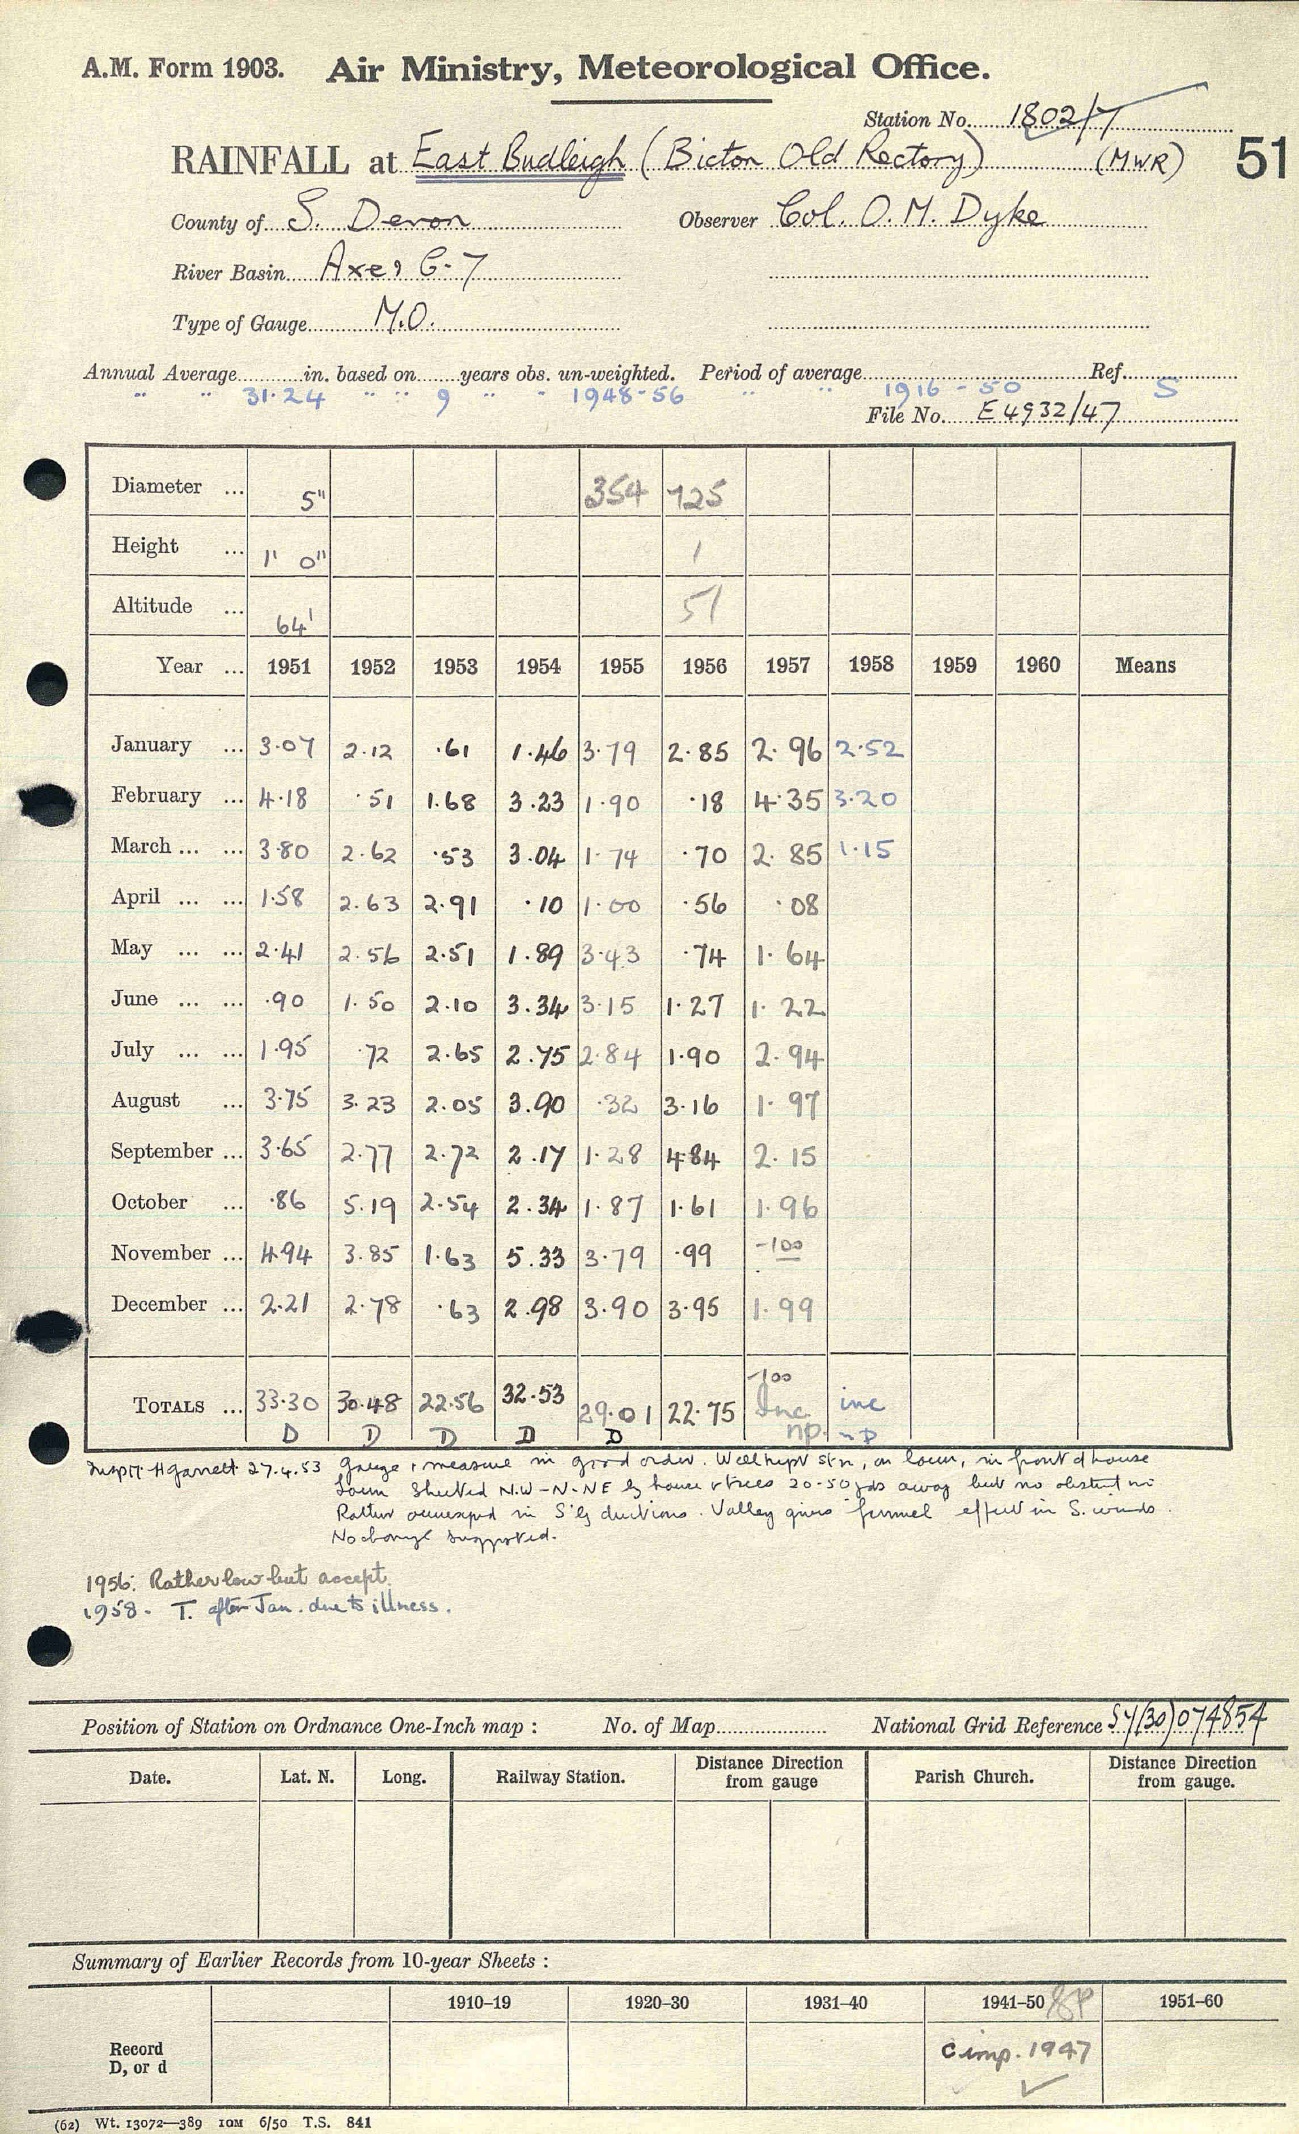 A.M. Form 1903. Air Ministry, Meteorological Office.
Station No. 1802/7
RAINFALL at East Budleigh (Bicton Old Rectory) (MWR) 51
County of S. Devon Observer Col. O. M. Dyke
River Basin Axe, 6-7
Type of Gauge M.O.
Annual Average in. based on years obs. un-weighted. Period of average Ref.
" " 31.24 " " 9 " " 1948-56 " " 1916-50 S
File No. E4932/47
Diameter ... 5" 354 725
Height ... 1' 0" 1
Altitude ... 64' 51
Year ... 1951 1952 1953 1954 1955 1956 1957 1958 1959 1960 Means
January ... 3.07 2.12 .61 1.46 3.79 2.85 2.96 2.52
February ... 4.18 .51 1.68 3.23 1.90 .18 4.35 3.20
March ... ... 3.80 2.62 .53 3.04 1.74 .70 2.85 1.15
April ... ... 1.58 2.63 2.91 .10 1.00 .56 .08
May ... ... 2.41 2.56 2.51 1.89 3.43 .74 1.64
June ... ... .90 1.50 2.10 3.34 3.15 1.27 1.22
July ... ... 1.95 .72 2.65 2.75 2.84 1.90 2.94
August ... 3.75 3.23 2.05 3.90 .32 3.16 1.97
September ... 3.65 2.77 2.72 2.17 1.28 4.84 2.15
October ... .86 5.19 2.54 2.34 1.87 1.61 1.96
November ... 4.94 3.85 1.63 5.33 3.79 .99 -100
December ... 2.21 2.78 .63 2.98 3.90 3.95 1.99
-100
TOTALS ... 33.30 30.48 22.56 32.53 29.01 22.75 Inc inc
D D D D D np. np
Insp: H Garrett 27.4.53 Gauge & measure in good order. Well kept stn, on lawn, in front of house
Lawn Sheltered N.W-N-NE by house & trees 20-50 yds away but no obstruction
Rather overexposed in S'ly directions. Valley gives funnel effect in S. winds.
No change suggested.
1956: Rather low but accept.
1958 - T. after Jan. due to illness.
Position of Station on Ordnance One-Inch map : No. of Map National Grid Reference SY(30)074854
Date. Lat. N. Long. Railway Station. Distance Direction from gauge Parish Church. Distance Direction from gauge.
Summary of Earlier Records from 10-year Sheets :
1910-19 1920-30 1931-40 1941-50 1951-60
Record D, or d C imp. 1947
(62) Wt. 13072—389 10M 6/50 T.S. 841